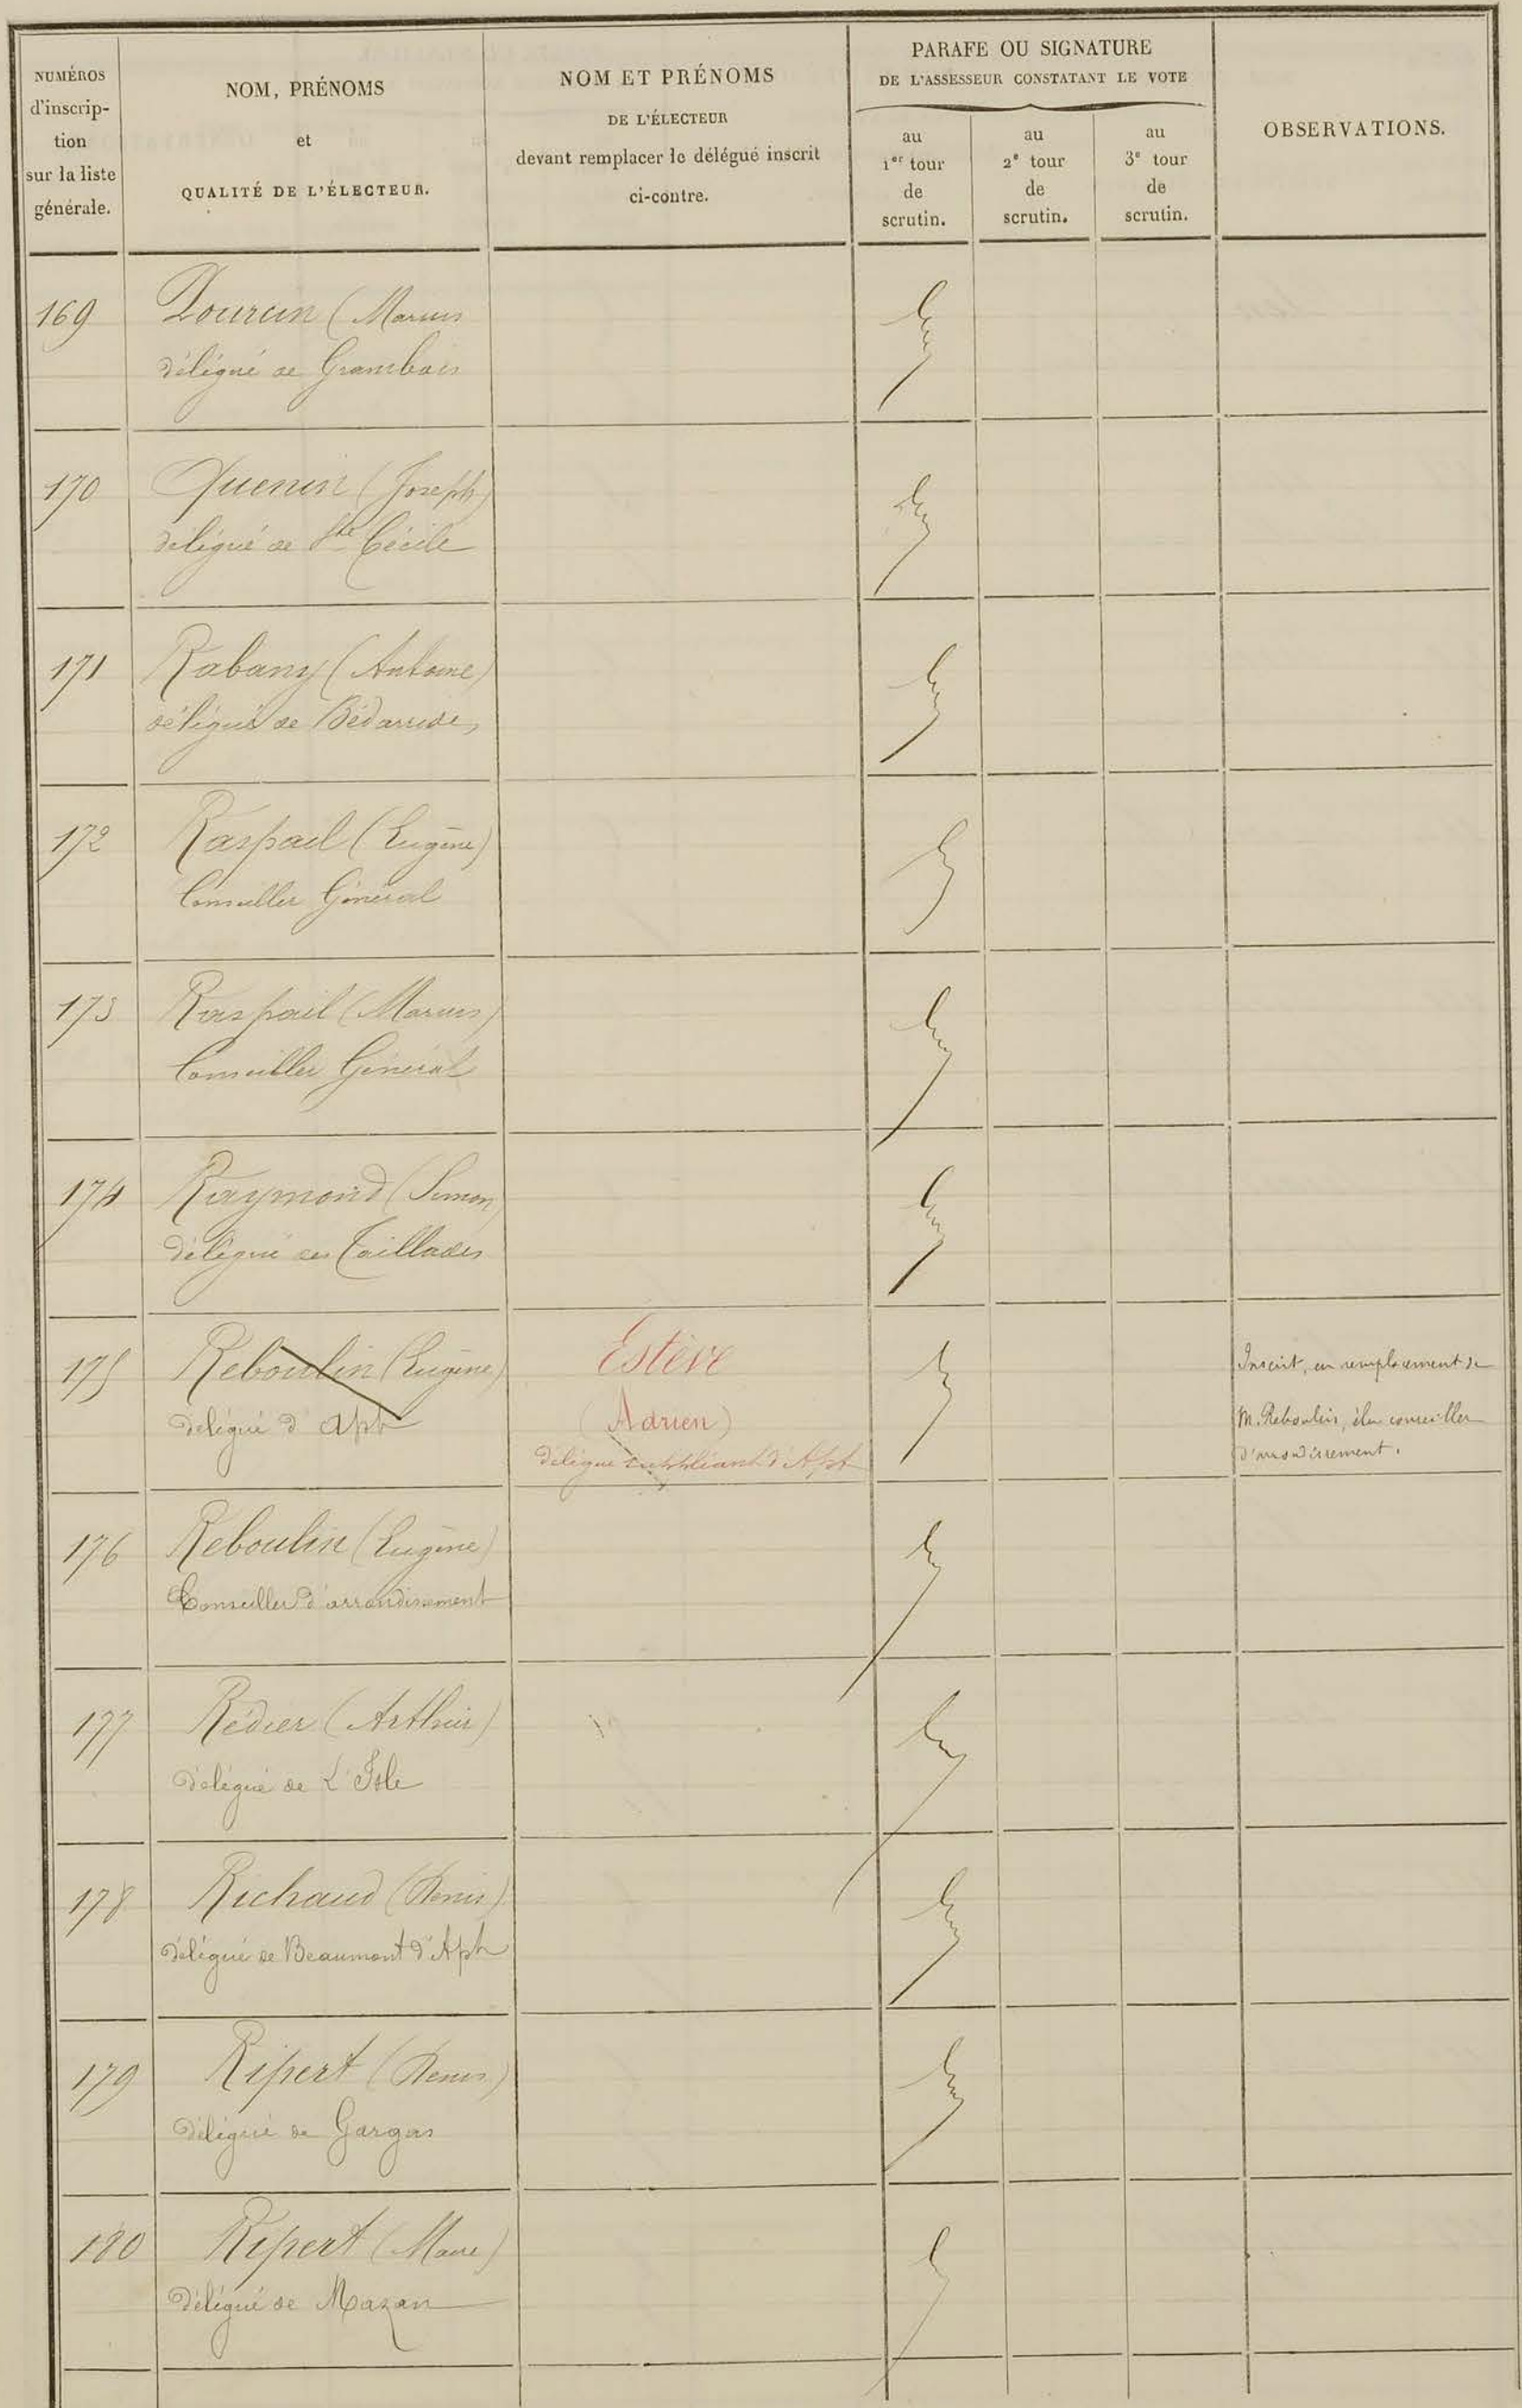 NUMÉROS
d'inscrip-
tion
sur la liste
générale.
NOM, PRÉNOMS
et
QUALITÉ DE L'ÉLECTEUR.
NOM ET PRÉNOMS
DE L'ÉLECTEUR
devant remplacer le délégué inscrit
ci-contre.
PARAFE OU SIGNATURE
DE L'ASSESSEUR CONSTATANT LE VOTE
au
1er tour
de
scrutin.
au
2e tour
de
scrutin.
au
3e tour
de
scrutin.
OBSERVATIONS.
169
(Marius
délégué de Grambois
170
Quenin (Joseph)
délégué de Ste Cécile
171
Rabany (Antoine)
délégué de Bédarrides
172
Raspail (Eugène)
Conseiller Général
173
Raspail (Marius)
Conseiller Général
174
Raymond (Simon)
délégué des Taillades
175
Reboulin (Eugène)
délégué d'Apt
Estève
(Adrien)
délégué suppléant d'Apt
Inscrit, en remplacement de
M. Reboulin, élu conseiller
d'arrondissement.
176
Reboulin (Eugène)
Conseiller d'arrondissement
177
Rédier (Arthur)
délégué de L'Isle
178
Richaud (Denis)
délégué de Beaumont d'Apt
179
Ripert (Denis)
délégué de Gargas
180
Ripert (Marie)
délégué de Mazan